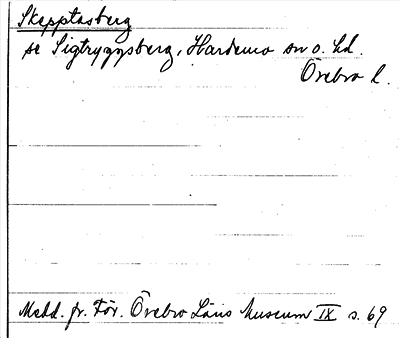 Skepptasberg
se Sigtryggsberg, Hardemo sn o. hd.
Örebro l.
Medd. fr. För. Örebro Läns Museum IX s. 69